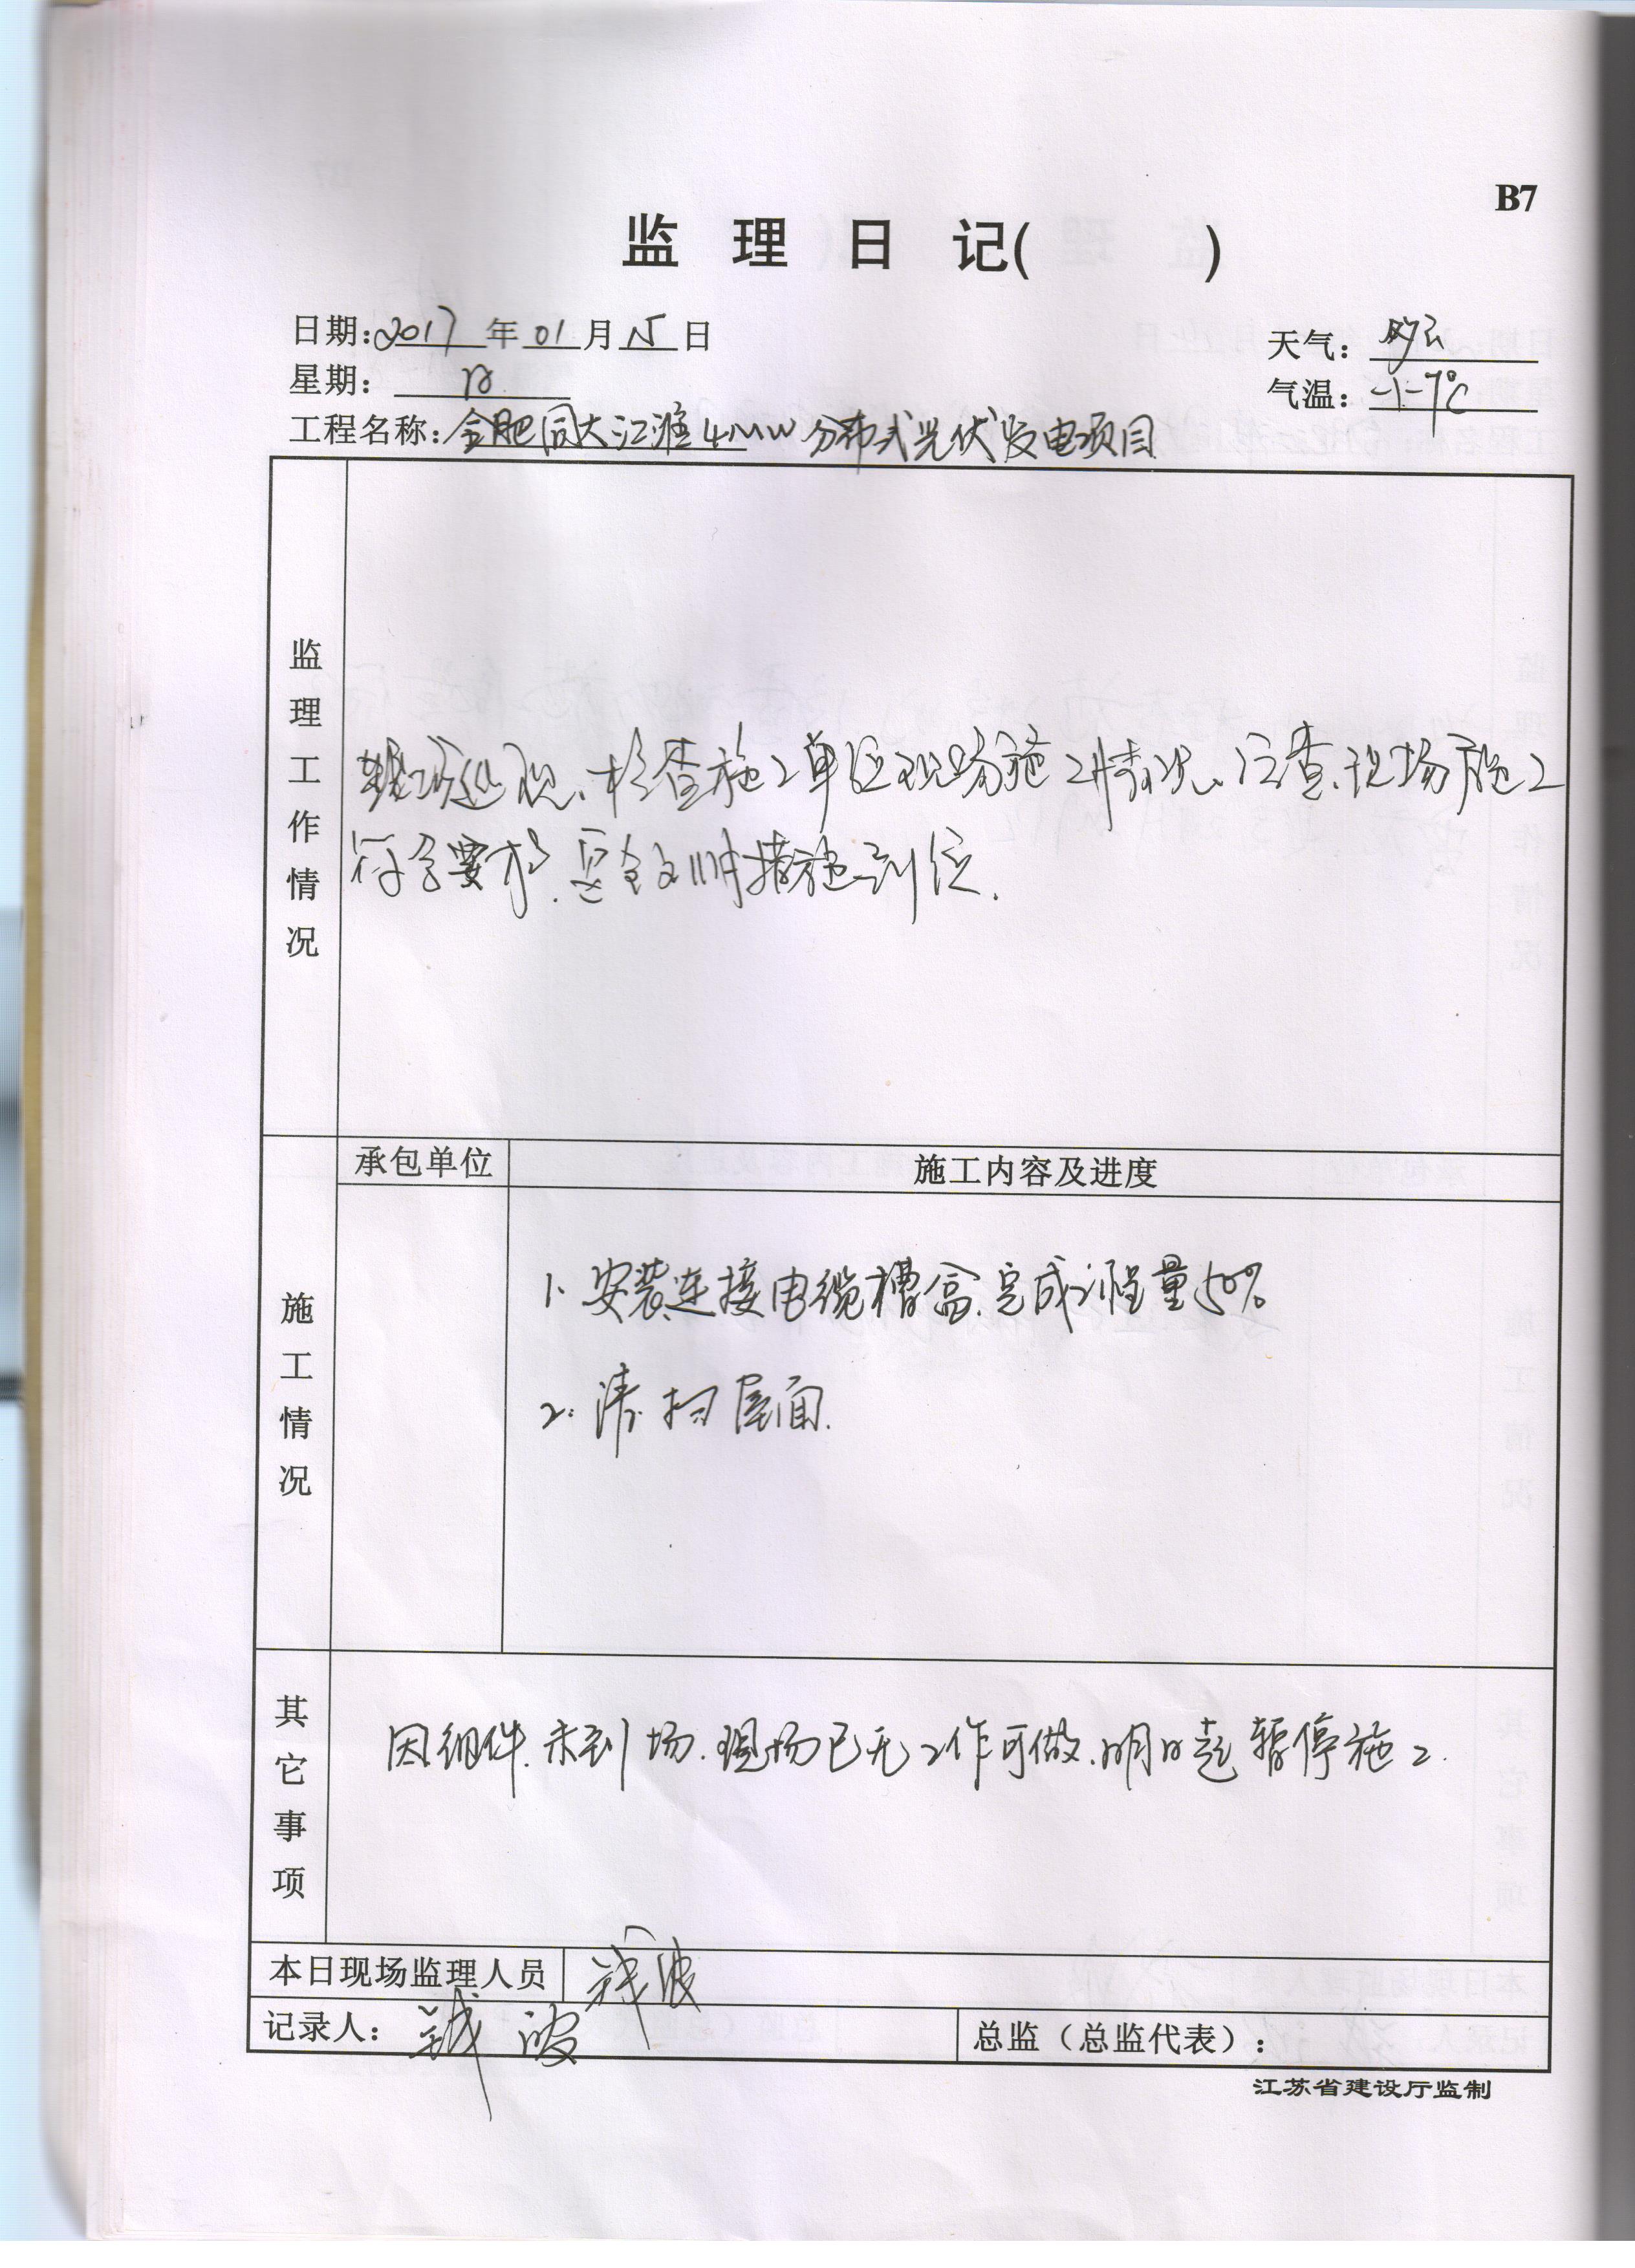 B7
监 理 日 记( )
日期:2017年01月15日
天气: 多云
星期: 日
气温: -1-7℃
工程名称:合肥同大江淮4MW分布式光伏发电项目
监理工作情况
现场巡视、检查施工单位现场施工情况、经查、现场施工
符合要求、安全文明措施到位.
承包单位 施工内容及进度
施工情况
1. 安装连接电缆槽盒.完成工程量50%
2. 清扫屋面.
其它事项
因组件未到场.现场已无工作可做.明日起暂停施工.
本日现场监理人员 钱波
记录人: 钱波
总监（总监代表）:
江苏省建设厅监制